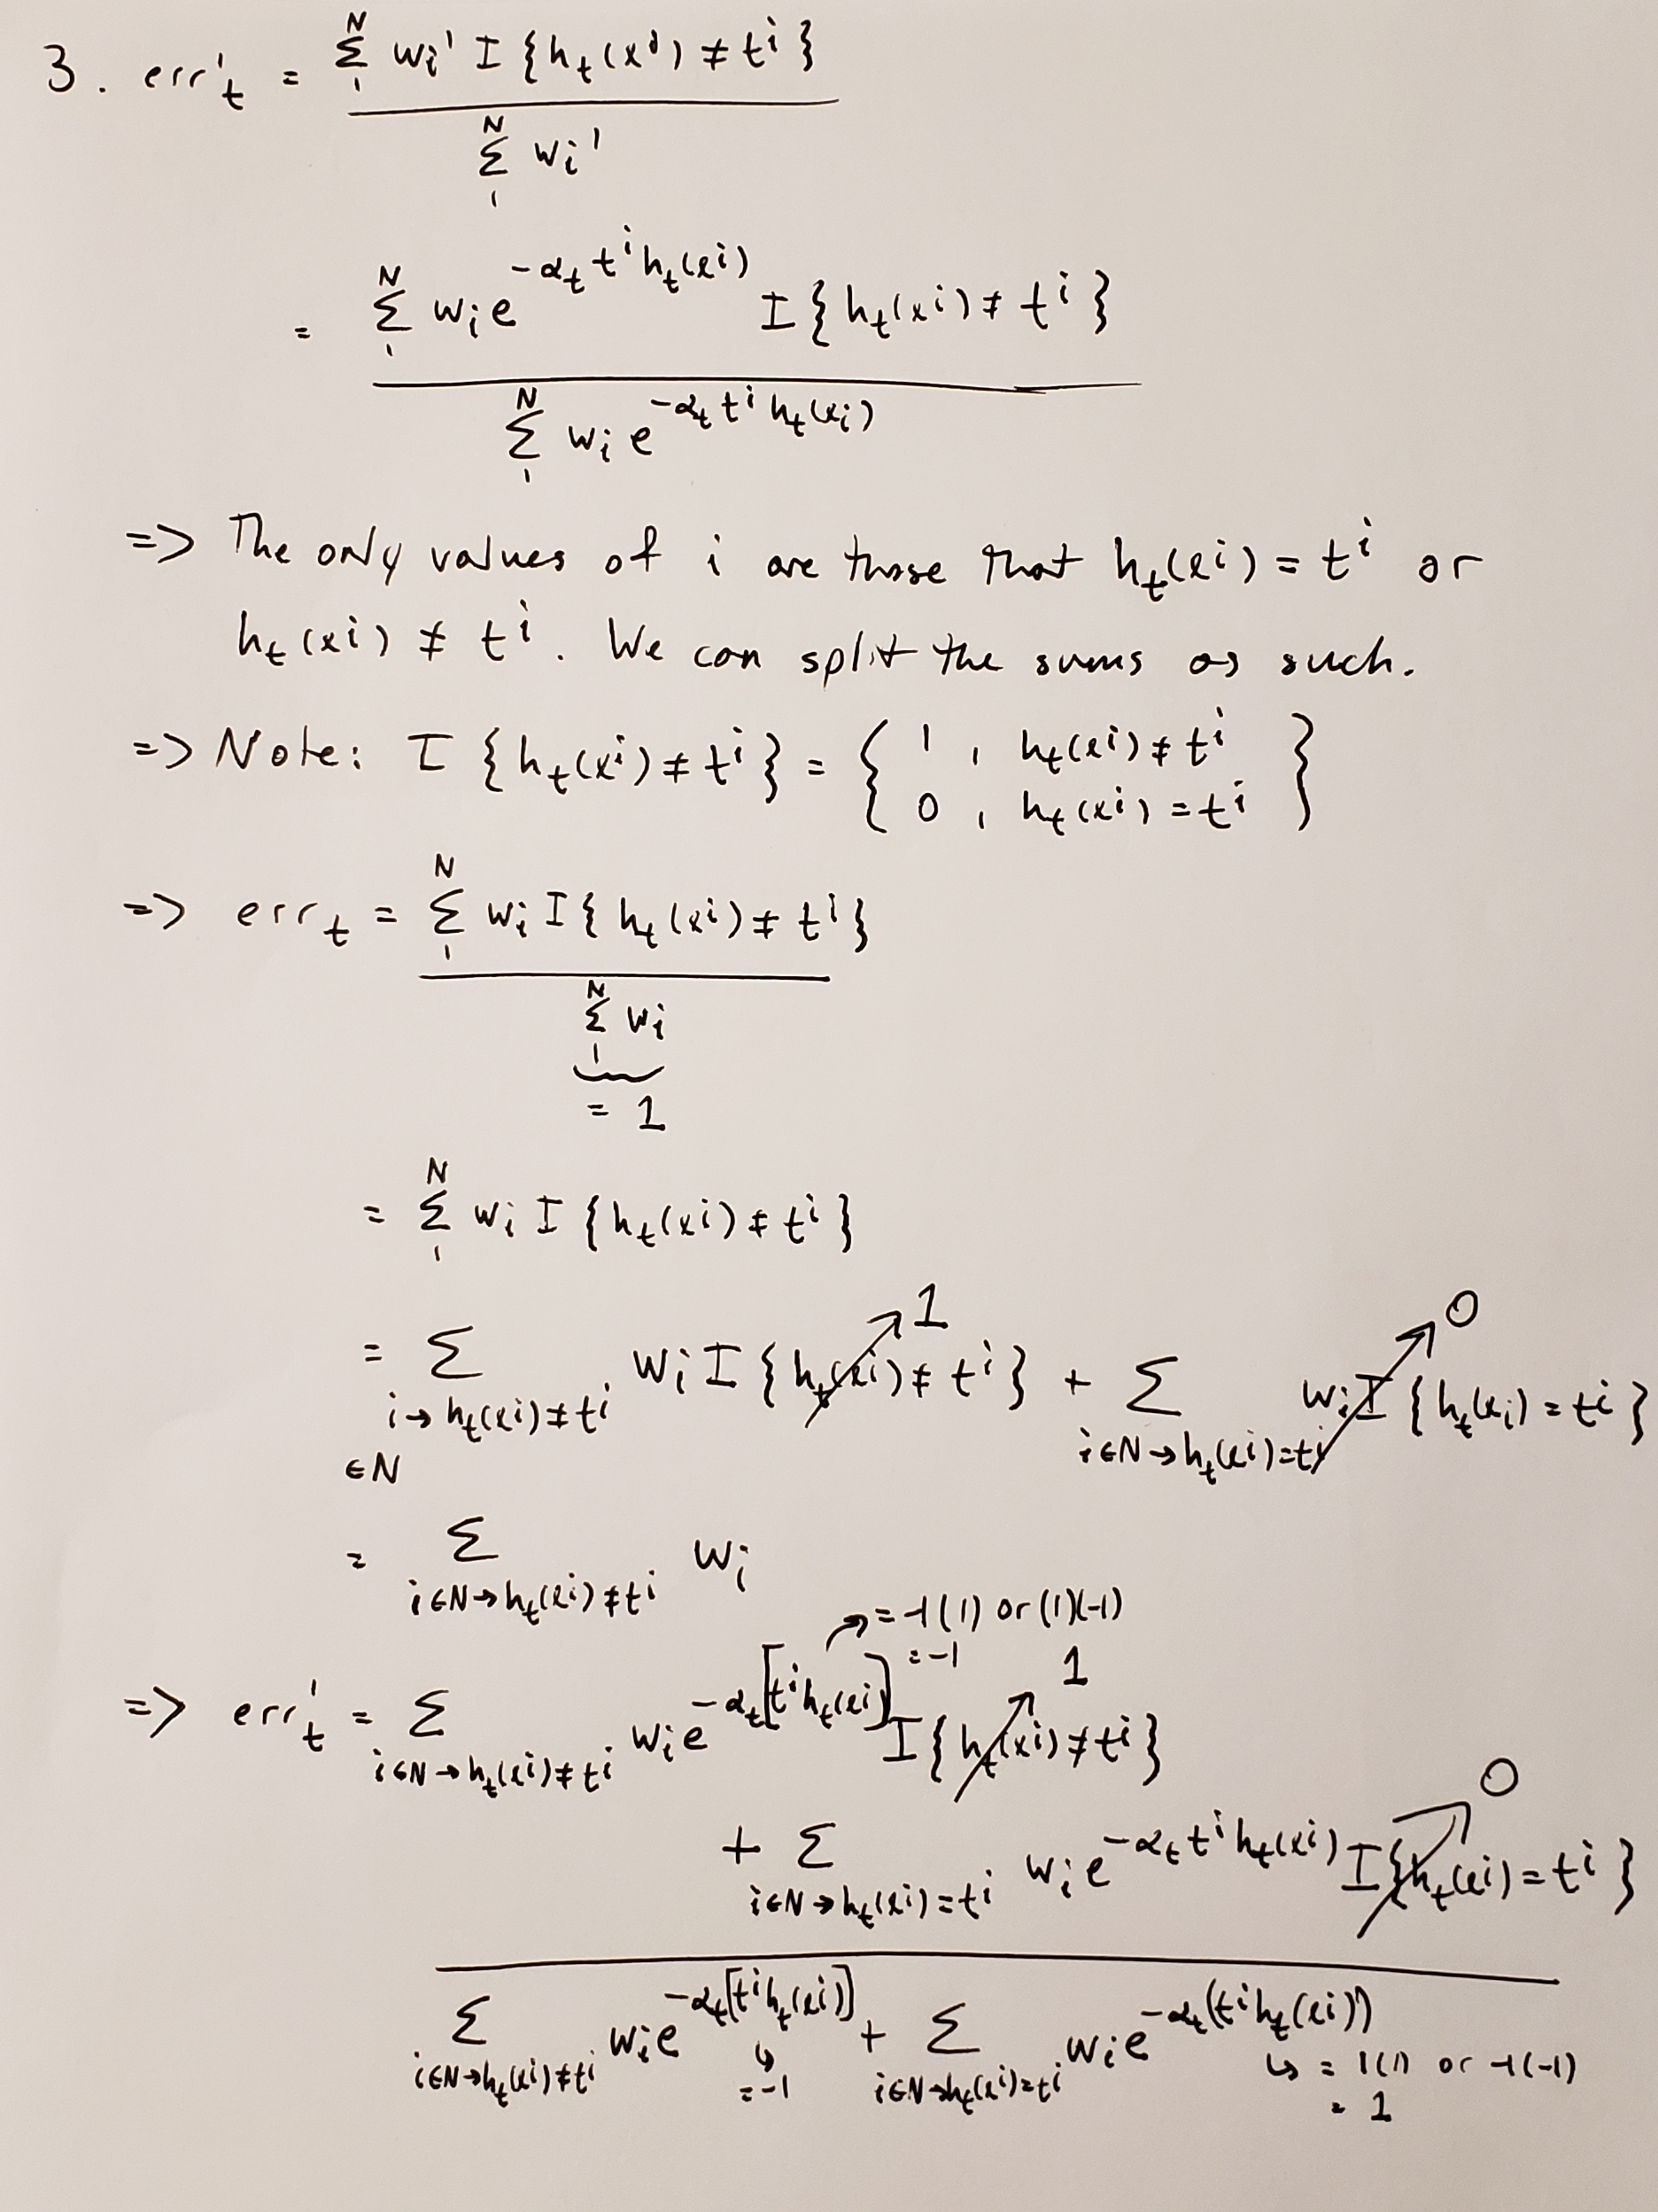 3. err'_t = Σ_1^N w_i' I{h_t(x^i) ≠ t^i}
Σ_1^N w_i'
= Σ_1^N w_i e^{-α_t t^i h_t(x^i)} I{h_t(x^i) ≠ t^i}
Σ_1^N w_i e^{-α_t t^i h_t(x^i)}
=> The only values of i are those that h_t(x^i) = t^i or
h_t(x^i) ≠ t^i. We can split the sums as such.
=> Note: I{h_t(x^i) ≠ t^i} = { 1 , h_t(x^i) ≠ t^i
0 , h_t(x^i) = t^i }
=> err_t = Σ_1^N w_i I{h_t(x^i) ≠ t^i}
Σ_1^N w_i
= 1
= Σ_1^N w_i I{h_t(x^i) ≠ t^i}
1 0
= Σ w_i I{h_t(x^i) ≠ t^i} + Σ w_i I{h_t(x_i) = t^i}
i → h_t(x^i) ≠ t^i i∈N → h_t(x^i) = t^i
∈N
= Σ w_i
i∈N → h_t(x^i) ≠ t^i
↗ = -1(1) or (1)(-1)
= -1 1
=> err'_t = Σ w_i e^{-α_t[t^i h_t(x^i)]} I{h_t(x^i) ≠ t^i}
i∈N → h_t(x^i) ≠ t^i
0
+ Σ w_i e^{-α_t t^i h_t(x^i)} I{h_t(x^i) = t^i}
i∈N → h_t(x^i) = t^i
Σ w_i e^{-α_t[t^i h_t(x^i)]} + Σ w_i e^{-α_t(t^i h_t(x^i))}
i∈N → h_t(x^i) ≠ t^i ↳ = -1 i∈N → h_t(x^i) = t^i ↳ = 1(1) or -1(-1)
= 1